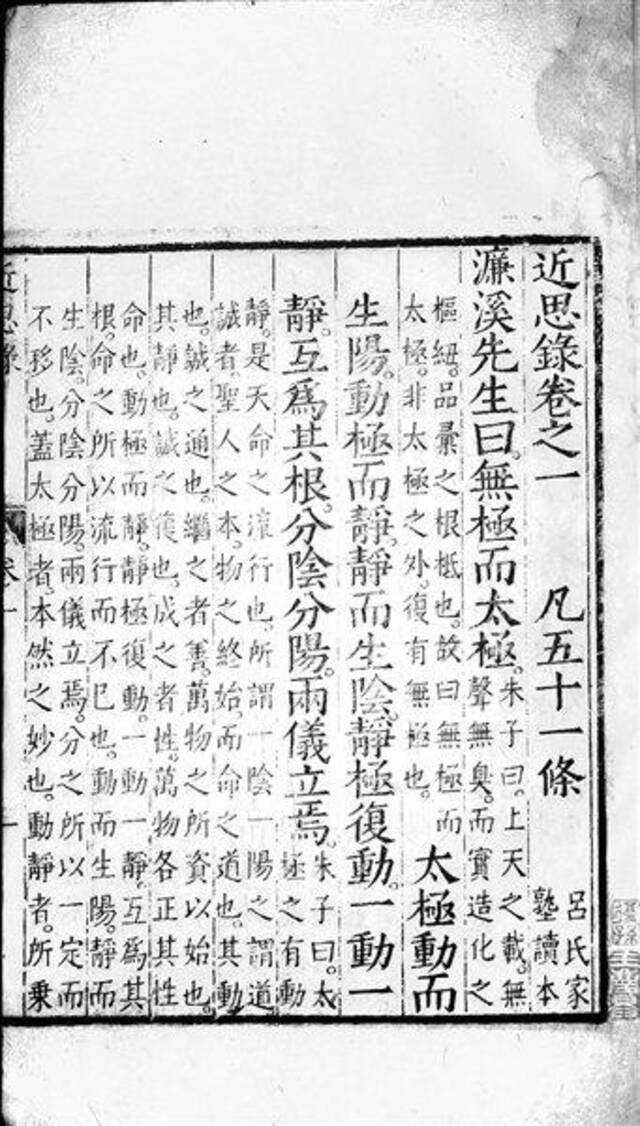 近思錄卷之一　凡五十一條
呂氏家
塾讀本
濂溪先生曰。無極而太極。
朱子曰。上天之載。無
聲無臭。而實造化之
樞紐。品彙之根柢也。故曰無極而
太極。非太極之外。復有無極也。
太極動而
生陽。動極而靜。靜而生陰。靜極復動。一動一
靜。互爲其根。分陰分陽。兩儀立焉。
朱子曰。太
極之有動
靜。是天命之流行也。所謂一陰一陽之謂道
誠者聖人之本。物之終始。而命之道也。其動
也。誠之通也。繼之者善。萬物之所資以始也。
其靜也。誠之復也。成之者性。萬物各正其性
命也。動極而靜。靜極復動。一動一靜。互爲其
根。命之所以流行而不已也。動而生陽。靜而
生陰。分陰分陽。兩儀立焉。分之所以一定而
不移也。蓋太極者。本然之妙也。動靜者。所乘
近思錄
卷一
一